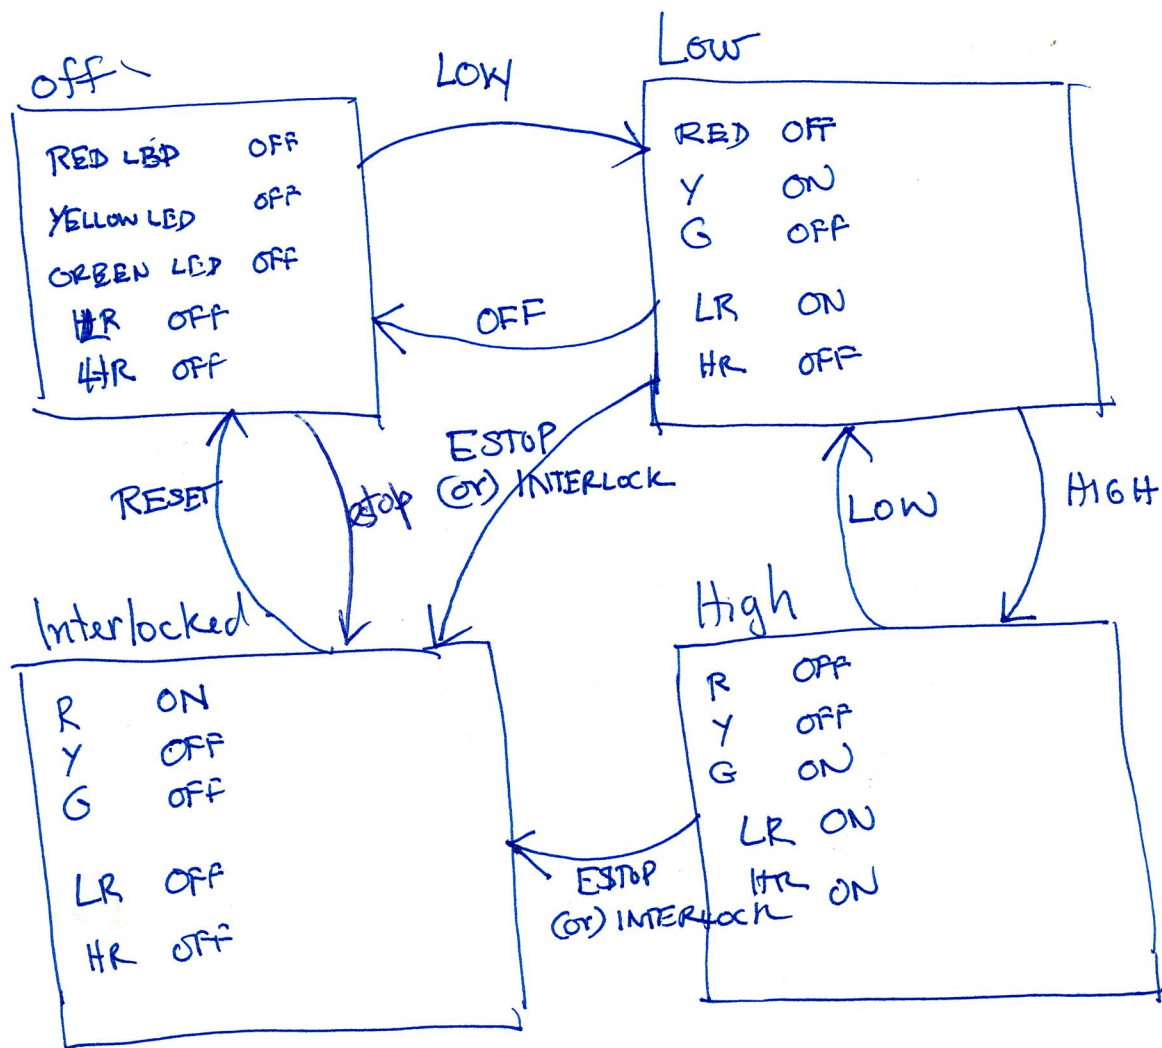 off
RED LED OFF
YELLOW LED OFF
GREEN LED OFF
LR OFF
HR OFF
LOW
Low
RED OFF
Y ON
G OFF
LR ON
HR OFF
OFF
ESTOP
(or) INTERLOCK
RESET
estop
LOW
HIGH
Interlocked
R ON
Y OFF
G OFF
LR OFF
HR OFF
High
R OFF
Y OFF
G ON
LR ON
HR ON
ESTOP
(or) INTERLOCK